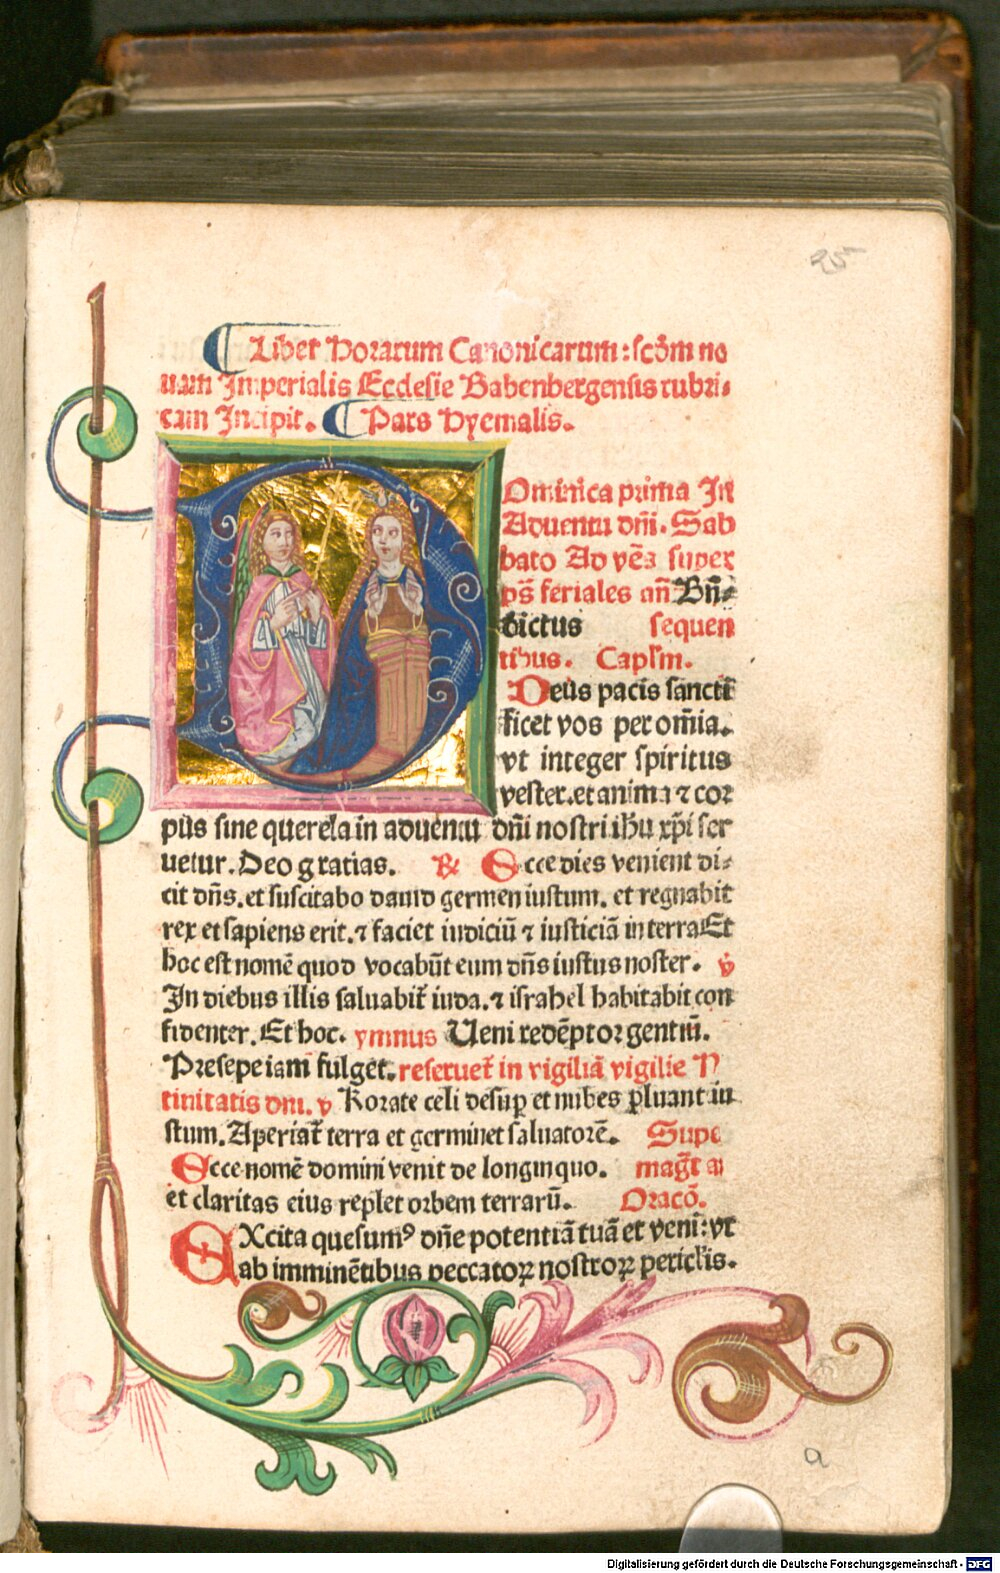 25
Liber Horarum Canonicarum: scōm no
uam Imperialis Ecclesie Babenbergensis rubri⸗
cam Incipit. Pars Hyemalis.
Ominica prima In
Aduentu dn̄i. Sab
bato Ad vēs super
ps̄ feriales an̄ Bn̄⸗
dictus sequen
tibus. Caplm.
Deus pacis sancti
ficet vos per om̄ia.
vt integer spiritus
vester. et anima ⁊ cor
pus sine querela in aduentu dn̄i nostri ihū xp̄i ser
uetur. Deo gratias. ℟ Ecce dies venient di⸗
cit dn̄s. et suscitabo dauid germen iustum. et regnabit
rex et sapiens erit. ⁊ faciet iudiciū ⁊ iusticiā in terra Et
hoc est nomē quod vocabūt eum dn̄s iustus noster. ℣
In diebus illis saluabit̄ iuda. ⁊ israhel habitabit con
fidenter. Et hoc. ymnus Ueni redēptor gentiū.
Presepe iam fulget. reseruet̄ in vigiliā vigilie N
tiuitatis dni. v Rorate celi desuꝑ et nubes ꝑluant iu
stum. Aperiat̄ terra et germinet saluatorē. Supe
Ecce nomē domini venit de longinquo. maḡt a
et claritas eius replet orbem terrarū. Oracō.
EXcita quesumꝰ dn̄e potentiā tuā et veni: vt
ab imminētibus peccatoꝝ nostroꝝ periclis.
a
Digitalisierung gefördert durch die Deutsche Forschungsgemeinschaft - DFG